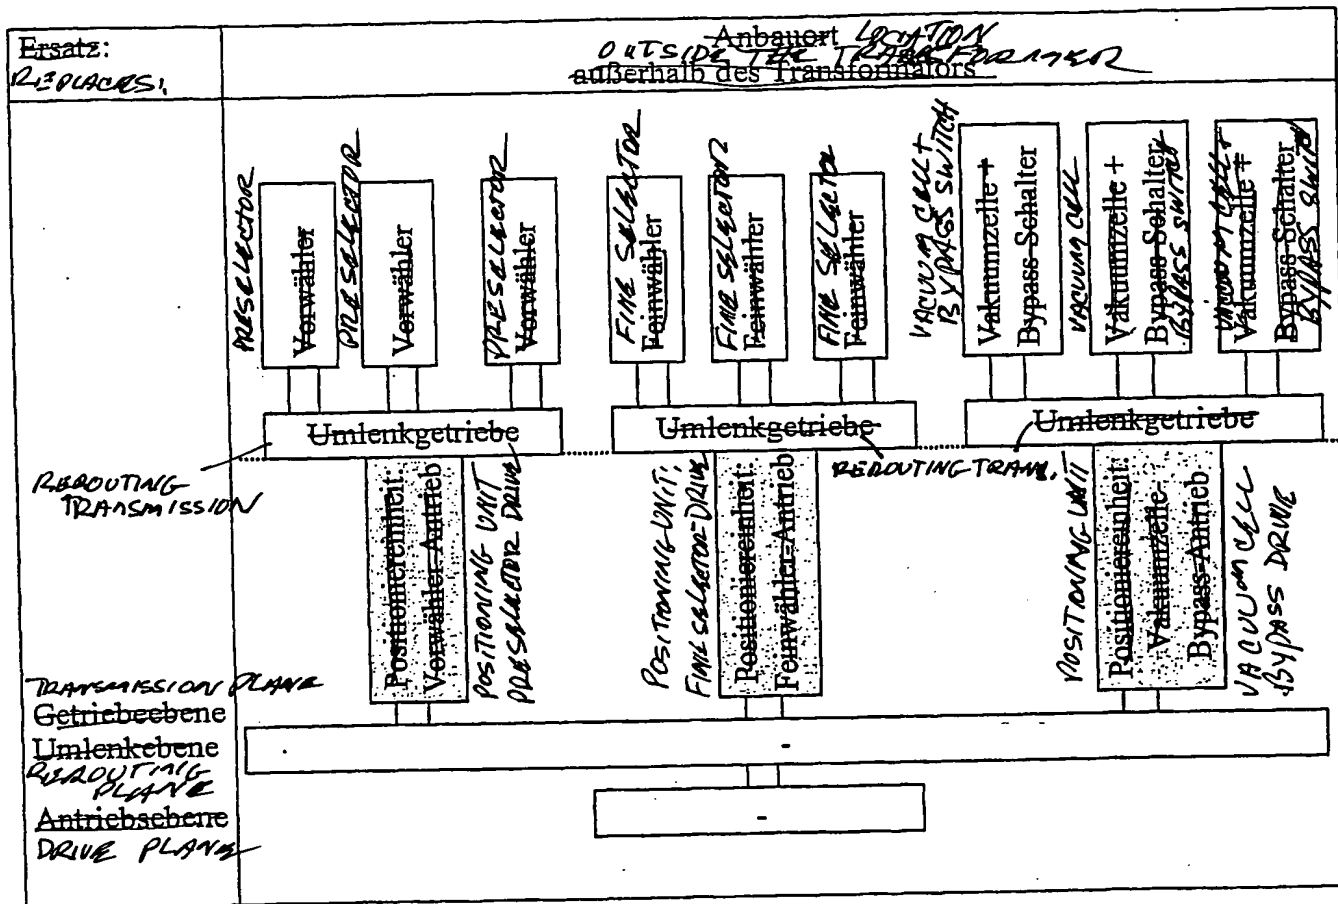 Ersatz:
REPLACES:
Anbauort LOCATION
OUTSIDE THE TRANSFORMER
außerhalb des Transformators
PRESELECTOR
Vorwähler
PRESELECTOR
Vorwähler
PRESELECTOR
Vorwähler
FINE SELECTOR
Feinwähler
FINE SELECTOR
Feinwähler
FINE SELECTOR
Feinwähler
VACUUM CELL +
BYPASS SWITCH
Vakuumzelle +
Bypass-Schalter
VACUUM CELL
Vakuumzelle +
Bypass-Schalter
BYPASS SWITCH
VACUUM CELL +
Vakuumzelle +
Bypass-Schalter
BYPASS SWITCH
Umlenkgetriebe
Umlenkgetriebe
Umlenkgetriebe
REROUTING
TRANSMISSION
REROUTING TRANS.
Positioniereinheit:
Vorwähler-Antrieb
POSITIONING UNIT
PRESELECTOR DRIVE
POSITIONING UNIT:
FINE SELECTOR-DRIVE
Positioniereinheit:
Feinwähler-Antrieb
POSITIONING UNIT
Positioniereinheit:
Vakuumzelle-
Bypass-Antrieb
VACUUM CELL
BYPASS DRIVE
TRANSMISSION PLANE
Getriebeebene
Umlenkebene
REROUTING
PLANE
Antriebsebene
DRIVE PLANE